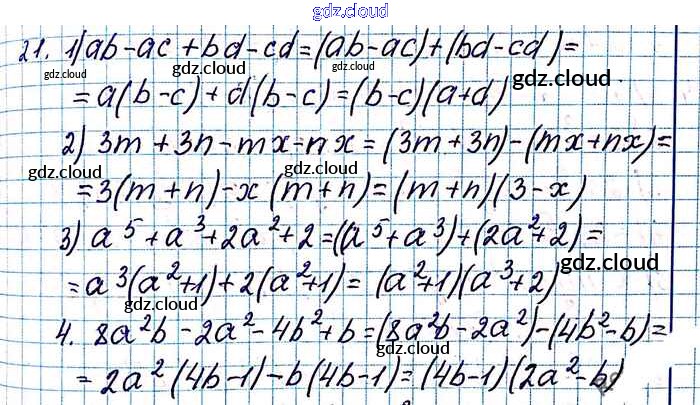 gdz.cloud
21. 1) ab-ac+bd-cd=(ab-ac)+(bd-cd)=
gdz.cloud gdz.cloud gdz.cloud gdz.cloud
=a(b-c)+d(b-c)=(b-c)(a+d)
gdz.cloud
2) 3m+3n-mx-nx=(3m+3n)-(mx+nx)=
gdz.cloud gdz.cloud
=3(m+n)-x(m+n)=(m+n)(3-x)
gdz.cloud
3) a⁵+a³+2a²+2=(a⁵+a³)+(2a²+2)=
gdz.cloud
=a³(a²+1)+2(a²+1)=(a²+1)(a³+2)
gdz.cloud
4. 8a²b-2a²-4b²+b=(8a²b-2a²)-(4b²-b)=
gdz.cloud gdz.cloud
=2a²(4b-1)-b(4b-1)=(4b-1)(2a²-b)